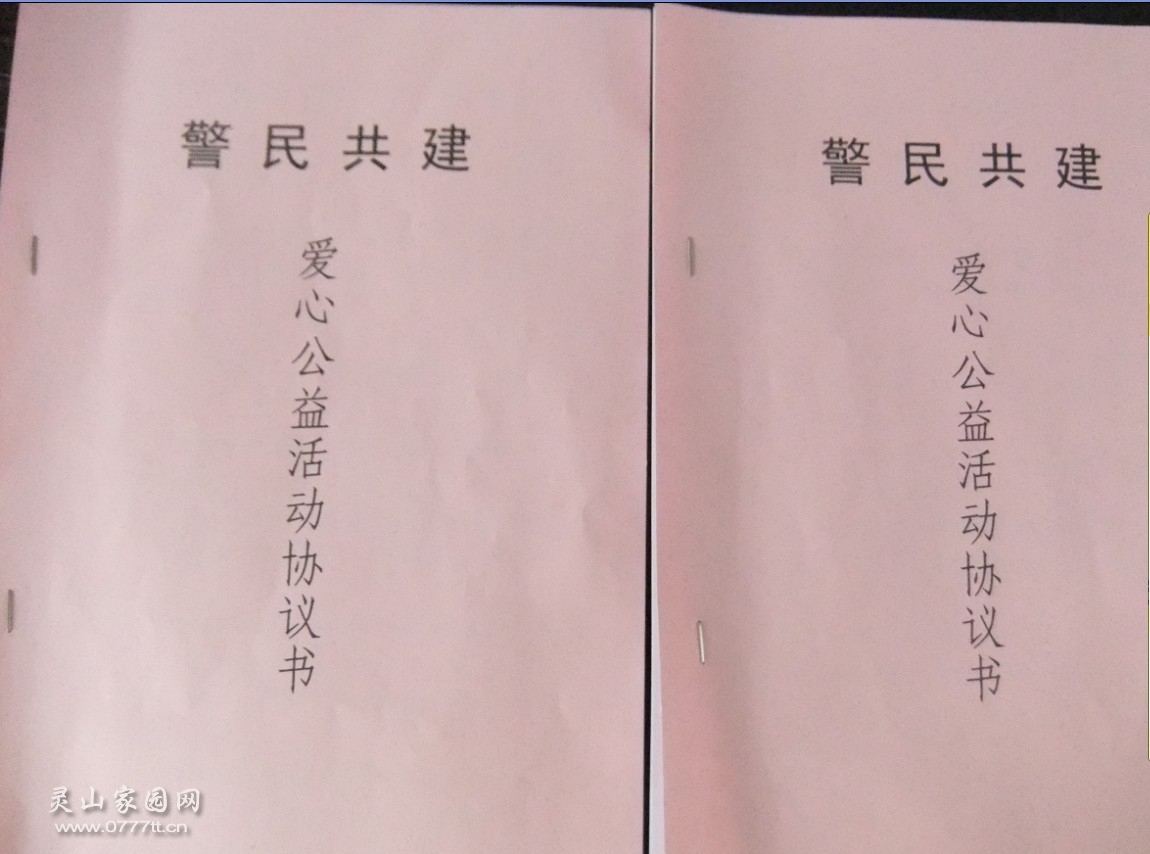 警民共建
爱心公益活动协议书
警民共建
爱心公益活动协议书
灵山家园网
www.0777tt.cn